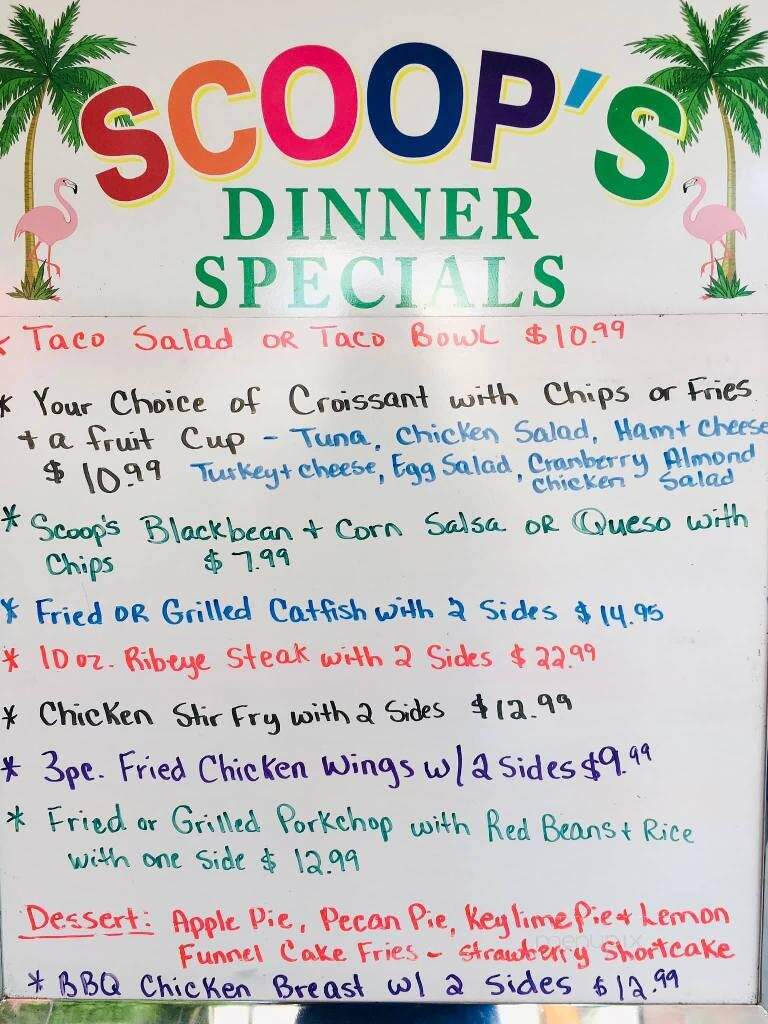 SCOOP'S
DINNER
SPECIALS
* Taco Salad OR Taco Bowl $10.99
* Your Choice of Croissant with Chips or Fries
+ a fruit Cup - Tuna, Chicken Salad, Ham + Cheese
$10.99 Turkey + cheese, Egg Salad, Cranberry Almond
chicken Salad
* Scoop's Blackbean + Corn Salsa OR Queso with
Chips $7.99
* Fried OR Grilled Catfish with 2 Sides $14.95
* 10 oz. Ribeye Steak with 2 Sides $22.99
* Chicken Stir Fry with 2 Sides $12.99
* 3pc. Fried Chicken Wings w/ 2 Sides $9.99
* Fried or Grilled Porkchop with Red Beans + Rice
with one Side $12.99
Dessert: Apple Pie, Pecan Pie, Key lime Pie + Lemon
Funnel Cake Fries - Strawberry Shortcake
* BBQ Chicken Breast w/ 2 Sides $12.99